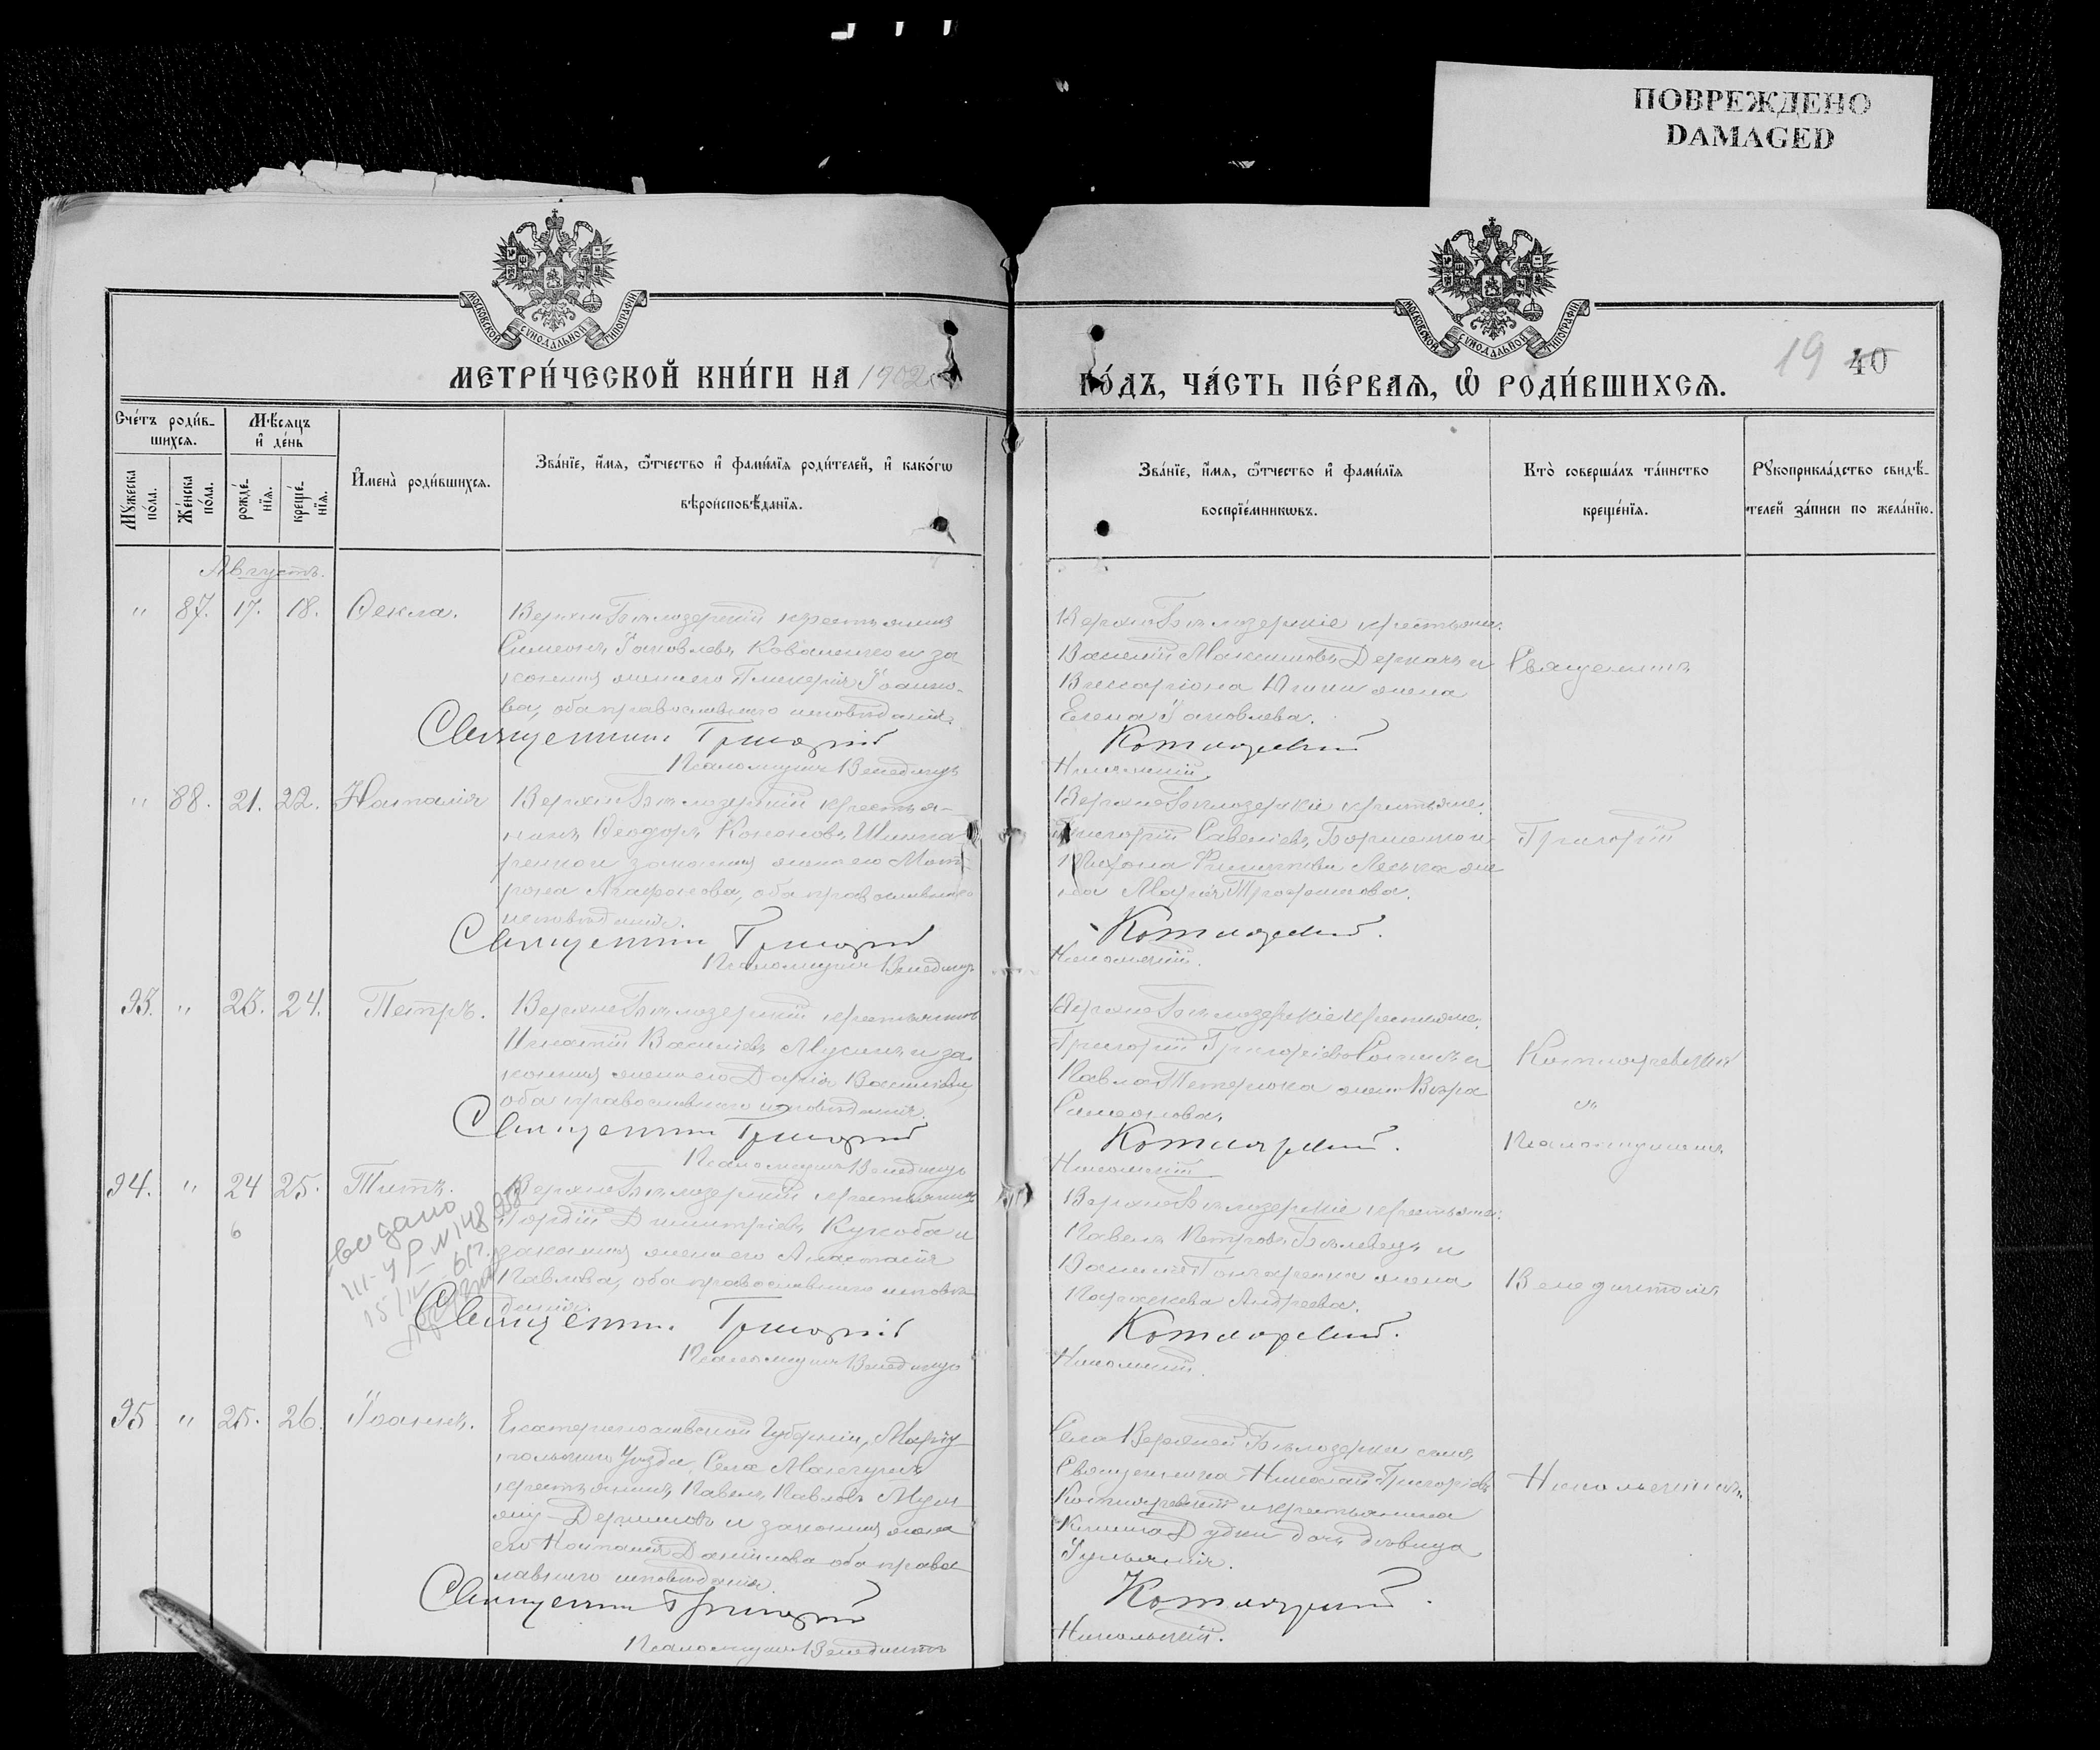 ПОВРЕЖДЕНО
DAMAGED
МОСКОВСКОЙ СѴНОДАЛЬНОЙ ТИПОГРАФІИ
МОСКОВСКОЙ СѴНОДАЛЬНОЙ ТИПОГРАФІИ
19 40
МЕТРИ́ЧЕСКОЙ КНИ́ГИ НА 1902
ГО́ДЪ, ЧА́СТЬ ПЕ́РВАѦ, Ѡ҆ РОДИ́ВШИХСѦ.
Сче́тъ роди́в-
шихсѧ.
Мѣсѧцъ
и҆ де́нь
Мꙋ́жеска по́ла.
Же́нска по́ла.
рожде́-
нїѧ.
креще́-
нїѧ.
И҆мена̀ роди́вшихсѧ.
Зва́нїе, и҆́мѧ, ѻ҆́тчество и҆ фами́лїѧ роди́телей, и҆ како́гѡ
вѣроисповѣ́данїѧ.
Зва́нїе, и҆́мѧ, ѻ҆́тчество и҆ фами́лїѧ
воспрїе́мникѡвъ.
Кто̀ соверша́лъ та́инство
креще́нїѧ.
Рꙋкоприкла́дство свидѣ́-
телей за́писи по жела́нїю.
Августъ.
" 87. 17. 18. Ѳекла.
Верхне Бѣлозерскій крестьянинъ
Симеонъ Іаковлевъ Коваленко и за
конная жена его Гликерія Іоанно-
ва, оба православнаго исповѣданія.
Священникъ Григорій
Псаломщикъ Венедиктъ
Верхне Бѣлозерскіе крестьяне:
Василій Максимовъ Деркачъ и
Виссаріона жена
Елена Іаковлева.
Котляревскій
Никольскій.
Священникъ
" 88. 21. 22. Наталія
Верхне Бѣлозерскій крестья-
нинъ Ѳеодоръ Кононовъ Шинка-
ренко и законная жена его Мат-
рона Агафонова, оба православнаго
исповѣданія.
Священникъ Григорій
Псаломщикъ Венедиктъ
Верхне Бѣлозерскіе крестьяне:
Григорій Савеліевъ и
Тихона Филиппова жe
на Марія Трофимова.
Котляревскій.
Никольскій.
Григорій
93. " 23. 24. Петръ.
Верхне Бѣлозерскій крестьянинъ
Игнатій Василіевъ Мусинъ и за
конная жена его Дарія Василіева,
оба православнаго исповѣданія.
Священникъ Григорій
Псаломщикъ Венедиктъ
Верхне Бѣлозерскіе крестьяне:
Григорій Григоріевъ и
Павла жена Вѣра
Симеонова.
Котляревскій.
Никольскій
Котляревскій
съ
Псаломщикомъ
94. " 24 25. Титъ.
6
выдано
III-УР №148938
15/IV-61г.
Верхне Бѣлозерскій крестьянинъ
Гордій Димитріевъ Кукоба и
законная жена его Анастасія
Павлова, оба православнаго исповѣ
данія.
Священникъ Григорій
Псаломщикъ Венедиктъ
Верхне Бѣлозерскіе крестьяне:
Павелъ Петровъ и
Василія Гончаренка жена
Параскева Андреева.
Котляревскій.
Никольскій.
Венедиктомъ
95 " 25. 26. Іоаннъ.
Екатеринославской Губерніи, Маріу
польскаго Уѣзда, Села Мангуша
крестьянинъ Павелъ Павловъ
и законная жена
его Наталія Даніилова оба право
славнаго исповѣданія.
Священникъ Григорій
Псаломщикъ Венедиктъ
Села Верхней Бѣлозерки сынъ
Священника Николай Григоріевъ
Котляревскій и крестьянина
Климта Дудки дочь дѣвица
Іуліанія.
Котляревскій.
Никольскій.
Никольскимъ.